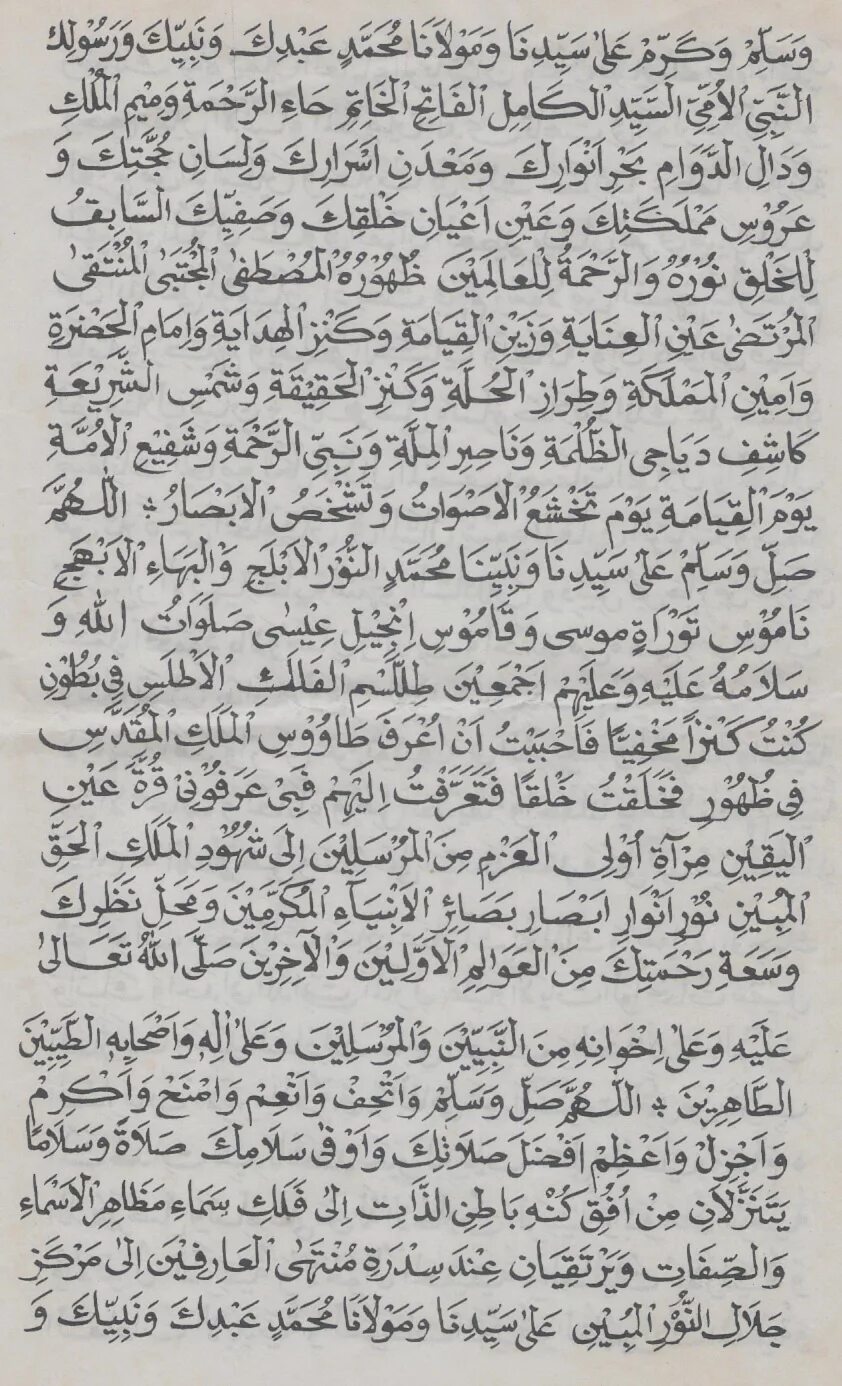 وَسَلِّمْ وَكَرِّمْ عَلٰى سَيِّدِنَا وَمَوْلَانَا مُحَمَّدٍ عَبْدِكَ وَنَبِيِّكَ وَرَسُولِكَ
النَّبِيِّ الْاُمِّيِّ السَّيِّدِ الْكَامِلِ الْفَاتِحِ الْخَاتِمِ حَاءِ الرَّحْمَةِ وَمِيمِ الْمُلْكِ
وَدَالِ الدَّوَامِ بَحْرِ اَنْوَارِكَ وَمَعْدَنِ اَسْرَارِكَ وَلِسَانِ حُجَّتِكَ وَ
عَرُوْسِ مَمْلَكَتِكَ وَعَيْنِ اَعْيَانِ خَلْقِكَ وَصَفِيِّكَ السَّابِقُ
لِلْخَلْقِ نُوْرُهُ وَالرَّحْمَةُ لِلْعَالَمِيْنَ ظُهُوْرُهُ الْمُصْطَفٰى الْمُجْتَبٰى الْمُنْتَقٰى
الْمُرْتَضٰى عَيْنِ الْعِنَايَةِ وَزَيْنِ الْقِيَامَةِ وَكَنْزِ الْهِدَايَةِ وَاِمَامِ الْحَضْرَةِ
وَاَمِيْنِ الْمَمْلَكَةِ وَطِرَازِ الْحُلَّةِ وَكَنْزِ الْحَقِيْقَةِ وَشَمْسِ الشَّرِيْعَةِ
كَاشِفِ دَيَاجِى الظُّلْمَةِ وَنَاصِرِ الْمِلَّةِ وَنَبِيِّ الرَّحْمَةِ وَشَفِيْعِ الْاُمَّةِ
يَوْمَ الْقِيَامَةِ يَوْمَ تَخْشَعُ الْاَصْوَاتُ وَتَشْخَصُ الْاَبْصَارُ ؞ اَللّٰهُمَّ
صَلِّ وَسَلِّمْ عَلٰى سَيِّدِنَا وَنَبِيِّنَا مُحَمَّدٍ النُّوْرِ الْاَبْلَجِ وَالْبَهَاءِ الْاَبْهَجِ
نَامُوْسِ تَوْرَاةِ موسى وَقَامُوْسِ اِنْجِيْلِ عِيْسٰى صَلَوَاتُ اللهِ وَ
سَلَامُهُ عَلَيْهِ وَعَلَيْهِمْ اَجْمَعِيْنَ طِلَّسْمِ الْفَلَكِ الْاَطْلَسِ فِى بُطُوْنِ
كُنْتُ كَنْزًا مَخْفِيًّا فَاَحْبَبْتُ اَنْ اُعْرَفَ طَاوُوْسِ الْمَلَكِ الْمُقَدَّسِ
فِى ظُهُوْرِ فَخَلَقْتُ خَلْقًا فَتَعَرَّفْتُ اِلَيْهِمْ فَبِىْ عَرَفُوْنِىْ قُرَّةِ عَيْنِ
الْيَقِيْنِ مِرْآةِ اُولِى الْعَزْمِ مِنَ الْمُرْسَلِيْنَ اِلَى شُهُوْدِ الْمَلَكِ الْحَقِّ
الْمُبِيْنِ نُوْرِ اَنْوَارِ اَبْصَارِ بَصَائِرِ الْاَنْبِيَآءِ الْمُكَرَّمِيْنَ وَمَحَلِّ نَظَرِكَ
وَسَعَةِ رَحْمَتِكَ مِنَ الْعَوَالِمِ الْاَوَّلِيْنَ وَالْآخِرِيْنَ صَلَّى اللهُ تَعَالٰى
عَلَيْهِ وَعَلٰى اِخْوَانِهِ مِنَ النَّبِيِّيْنَ وَالْمُرْسَلِيْنَ وَعَلٰى اٰلِهِ وَاَصْحَابِهِ الطَّيِّبِيْنَ
الطَّاهِرِيْنَ ؞ اَللّٰهُمَّ صَلِّ وَسَلِّمْ وَاَتْحِفْ وَاَنْعِمْ وَامْنَحْ وَاَكْرِمْ
وَاَجْزِلْ وَاَعْظِمْ اَفْضَلَ صَلَاتِكَ وَاَوْفٰى سَلَامِكَ صَلَاةً وَسَلَامًا
يَتَنَزَّلَانِ مِنْ اُفُقِ كُنْهِ بَاطِنِ الذَّاتِ اِلٰى فَلَكِ سَمَاءِ مَظَاهِرِ الْاَسْمَاءِ
وَالصِّفَاتِ وَيَرْتَقِيَانِ عِنْدَ سِدْرَةِ مُنْتَهَى الْعَارِفِيْنَ اِلٰى مَرْكَزِ
جَلَالِ النُّوْرِ الْمُبِيْنِ عَلٰى سَيِّدِنَا وَمَوْلَانَا مُحَمَّدٍ عَبْدِكَ وَنَبِيِّكَ وَ